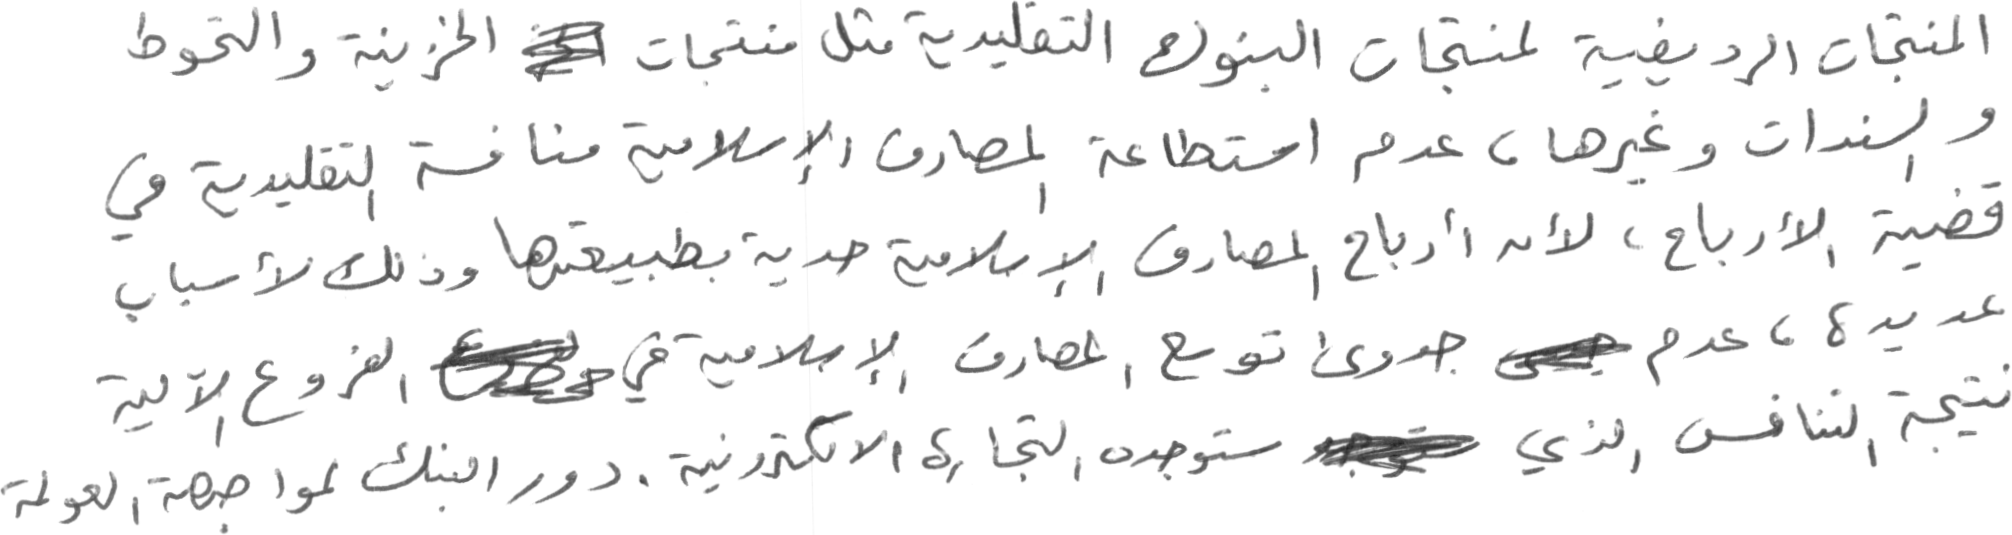 المنتجات الرديفية لمنتجات البنوك التقليدية مثل منتجات الخزينة والتحوط
والسندات وغيرها، عدم استطاعة المصارف الإسلامية منافسة التقليدية في
قضية الأرباح، لأن أرباح المصارف الإسلامية حدية بطبيعتها وذلك لأسباب
عديدة، عدم جدوى توسع المصارف الإسلامية في الفروع الآلية
نتيجة التنافس الذي ستوجده التجارة الالكترونية. دور البنك لمواجهة العولمة